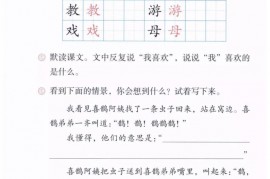 教 教 游 游
戏 戏 母 母
默读课文。文中反复说“我喜欢”，说说“我”喜欢的
是什么。
看到下面的情景，你会想到什么？试着写下来。
我看见喜鹊阿姨找了一条虫子回来，站在窝边。喜
鹊弟弟一齐叫道：“鹊！鹊！鹊鹊鹊！”
我懂得，他们的意思是：“
”
喜鹊阿姨把虫子送到喜鹊弟弟嘴里，叫起来：“鹊，